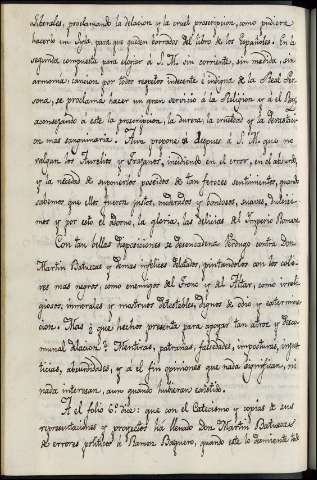 liberales, proclamando la delacion y la cruel proscripcion, como pudiera
hacerlo un Syla, para que queden borrados del libro de los Españoles. En la
segunda compuesta para elogiar á S. M. sin corriente, sin medida, sin
armonia, cancion por todos respetos indecente é indigna de la Real Per-
sona, se proclama hacer un gran servicio á la Religion y á el Rey,
aconsejando á este la proscripcion, la dureza, la crueldad y la devastaci-
on mas sanguinaria. Aun propone despues á S. M. que no
valgan los Aurelios y Trajanos, incidiendo en el error, en el absurdo,
y la necedad de suponerlos poseidos de tan feroces sentimientos, quando
sabemos que ellos fueron justos, moderados y bondosos, suaves, dulcisi-
mos y por esto el adorno, la gloria, las delicias del Imperio Romano.
Con tan bellas disposiciones se desencadena Verdugo contra Don
Martin Batuecas y demas infelices delatados, pintandolos con los colo-
res mas negros, como enemigos del Trono y del Altar, como irreli-
giosos, inmorales y mostruos detestables, dignos de odio y extermina-
cion. Mas é que hechos presenta para apoyar tan atroz y desco-
munal delacion? Mentiras, patrañas, falsedades, imposturas, injus-
ticias, absurdidades, y á el fin opiniones que nada significan, ni
nada interesan, aun quando hubieran existido.
Al folio 6º dice: que con el Catecismo y copias de sus
representaciones y proyectos ha llenado Don Martin Batuecas
de errores politicos á Ramon Baquero, quando este lo desmiente